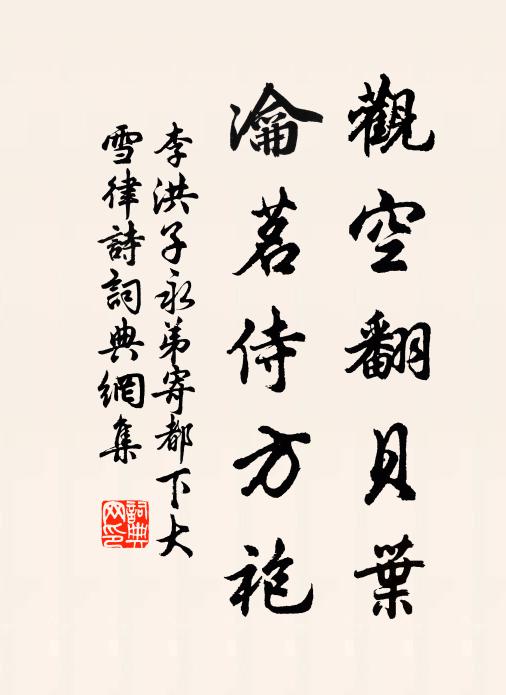 觀空翻貝葉
瀹茗侍方袍
李洪子永弟寄都下大
雪律詩詞典網集
詞典网印